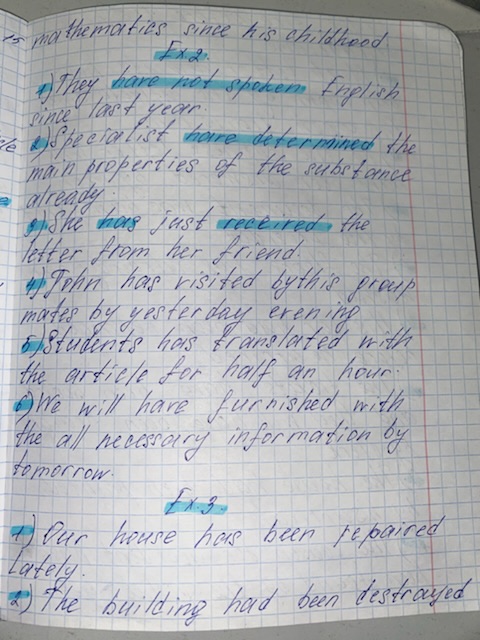 mathematics since his childhood
Ex 2.
1) They have not spoken English
since last year.
2) Specialist have determined the
main properties of the substance
already.
3) She has just received the
letter from her friend.
4) John has visited by this group
mates by yesterday evening
5) Students has translated with
the article for half an hour.
6) We will have furnished with
the all necessary information by
tomorrow.
Ex. 3.
1) Our house has been repaired
lately.
2) The building had been destrayed